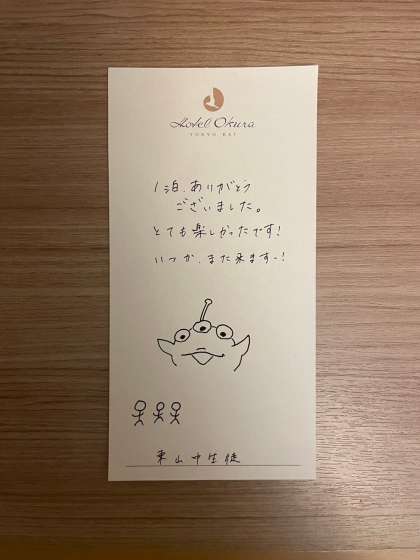 Hotel Okura
TOKYO BAY
1泊、ありがとう
ございました。
とても楽しかったです!
いつか、また来ますー!
東山中生徒